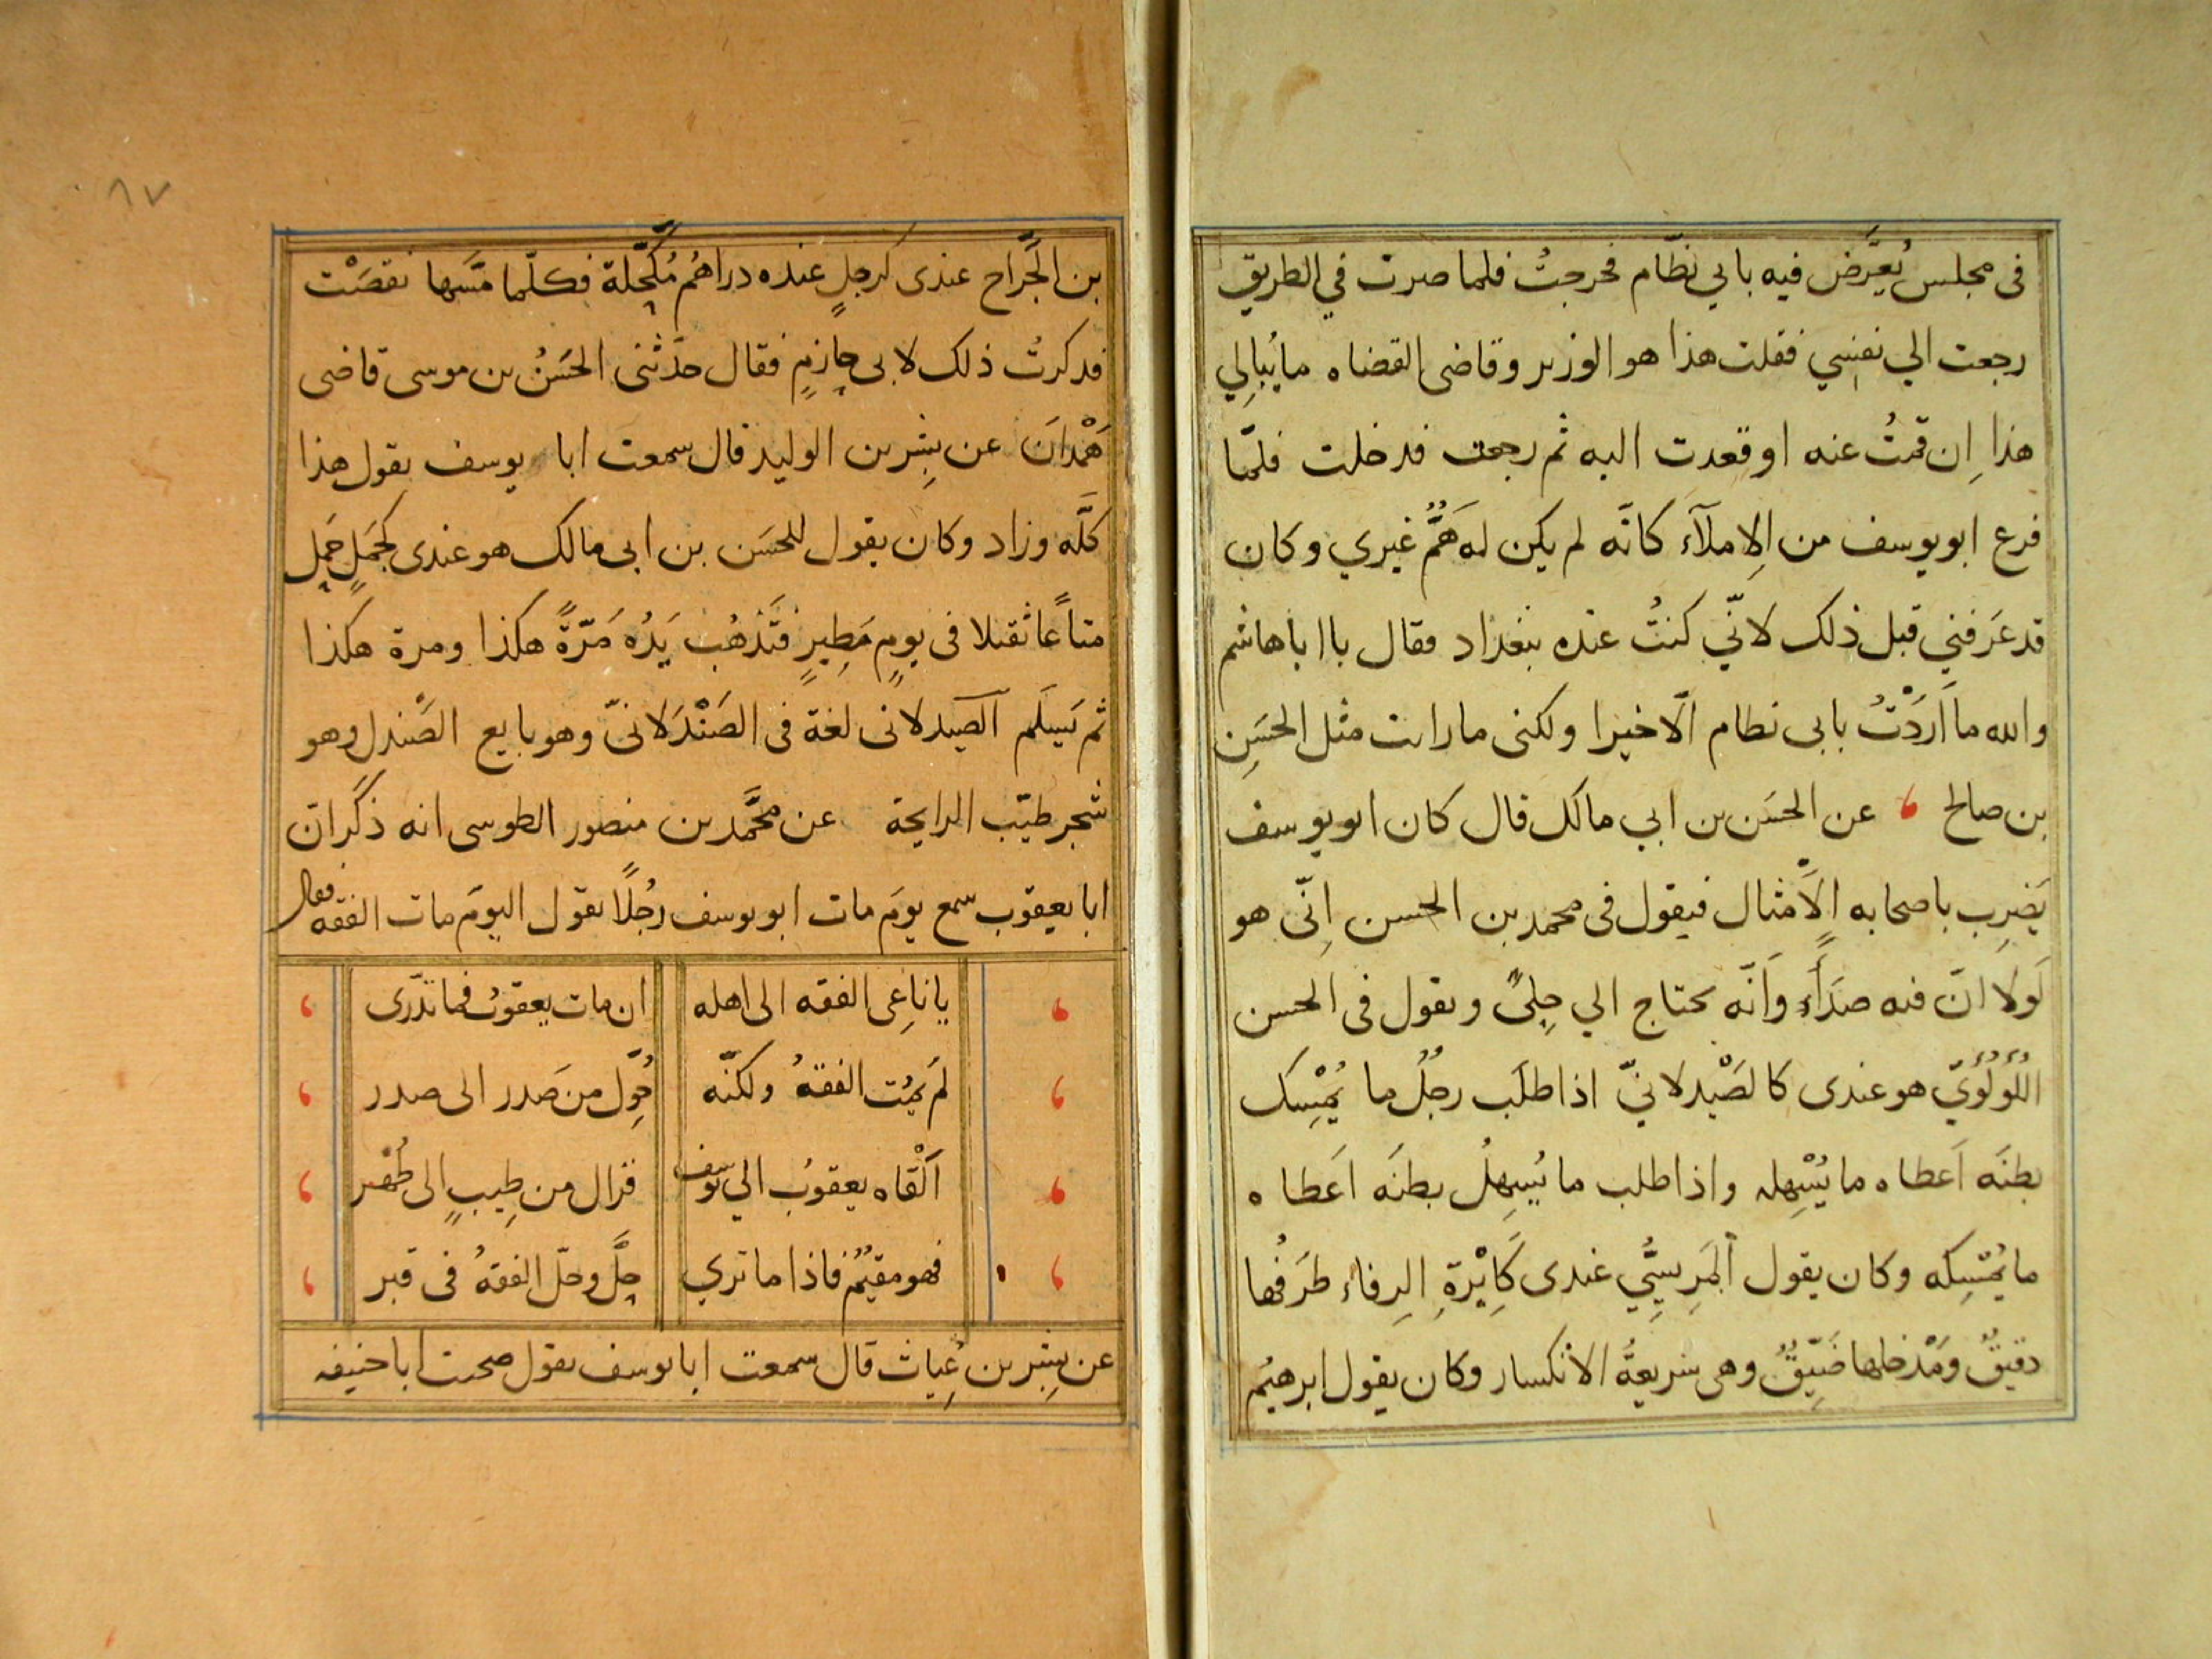 فى مجلس يُعَرَّض فيه بابي نظّام فخرجتُ فلما صرت في الطريق
رجعت الي نفسِي فقلت هذا هو الوزير وقاضى القضاه ما يُبالِي
هذا اِن قمتُ عنه او قعدت اليه ثم رجعت فدخلت فلمّا
فرع ابو يوسف من الاِملآءَ كانّه لم يكن له هَمٌّ غيري وكان
قد عَرَفني قبل ذلك لانّي كنتُ عنده ببغداد فقال يا اباهاشم
والله ما اَردْتُ بابى نظام الّا خيرا ولكنى مارات مثل الحسَنِ
بن صالح عن الحسَن بن ابي مالك قال كان ابو يوسف
يَضِرب باصحابه الاَمْثال فيقول فى محمد بن الحسن اِنّى هو
لَولا انّ فيه صَدَاًء وَانّه يحتاج الي جِلىً ويقول فى الحسن
اللُؤلُؤيّ هو عندى كالصَيْدلانيّ اذا طلَب رجُلٌ ما يُمْسِك
بطنَه اَعطاه ما يُسْهِله واذا طلب ما يُسِهلُ بطنَه اَعَطاه
ما يُمْسِكه وكان يقول اَلمَرِيسِّي عندى كَاِبْرةِ الرِفاء طَرَفُها
دقيقٌ ومَدْخلها ضَيِّقٌ وهى سَريعةُ الانكسار وكان يقول ابرهيُم
٨٧
بن الجَّراح عندى كرجلٍ عنده دراهُم مُكَحّلة فكلّما مَسَّها نقصَتْ
فدكرتُ ذلك لابى حازمٍ فقال حدَّثنى الحَسَنُ بن موسى قاضى
هَمْدانَ عن بِشر بن الوليد قال سمعت ابا يوسف يقول هذا
كلَّه وزاد وكان يقول للحسَن بن ابى مالك هو عندى كجمَلٍ حَمَل
متاعًا ثقيلا فى يومٍ مَطِيرٍ فتَذهُب يَدُه مَرّةً هكذا ومرة هكذا
ثم يَسلَم الصَيدلانى لغة فى الصَنْدَلانىّ وهو بايع الصَندل وهو
شجر طيّب الرايحة عن محمَّد بن منصور الطوسى انه ذكَر انّ
ابا يعقوب سمع يومَ مات ابو يوسف رجُلًا يقول اليومَ مات الفقه فقال
يا ناعِى الفقه الى اهله ان مات يعقوبُ فما تدّرى
لَم يمُت الفقهُ ولكنّه حُوِّل من صَدر الى صدر
اَلْقاه يعقوبُ الي يوسف فزال من طِيبٍ الى طُهْر
فهو مقيمٌ فاذا ما تري حلَّ وحلّ الفقهُ فى قبر
عن بِشر بن غِياث قال سمعت ابا يوسف يقول صحبت ابا حنيفه